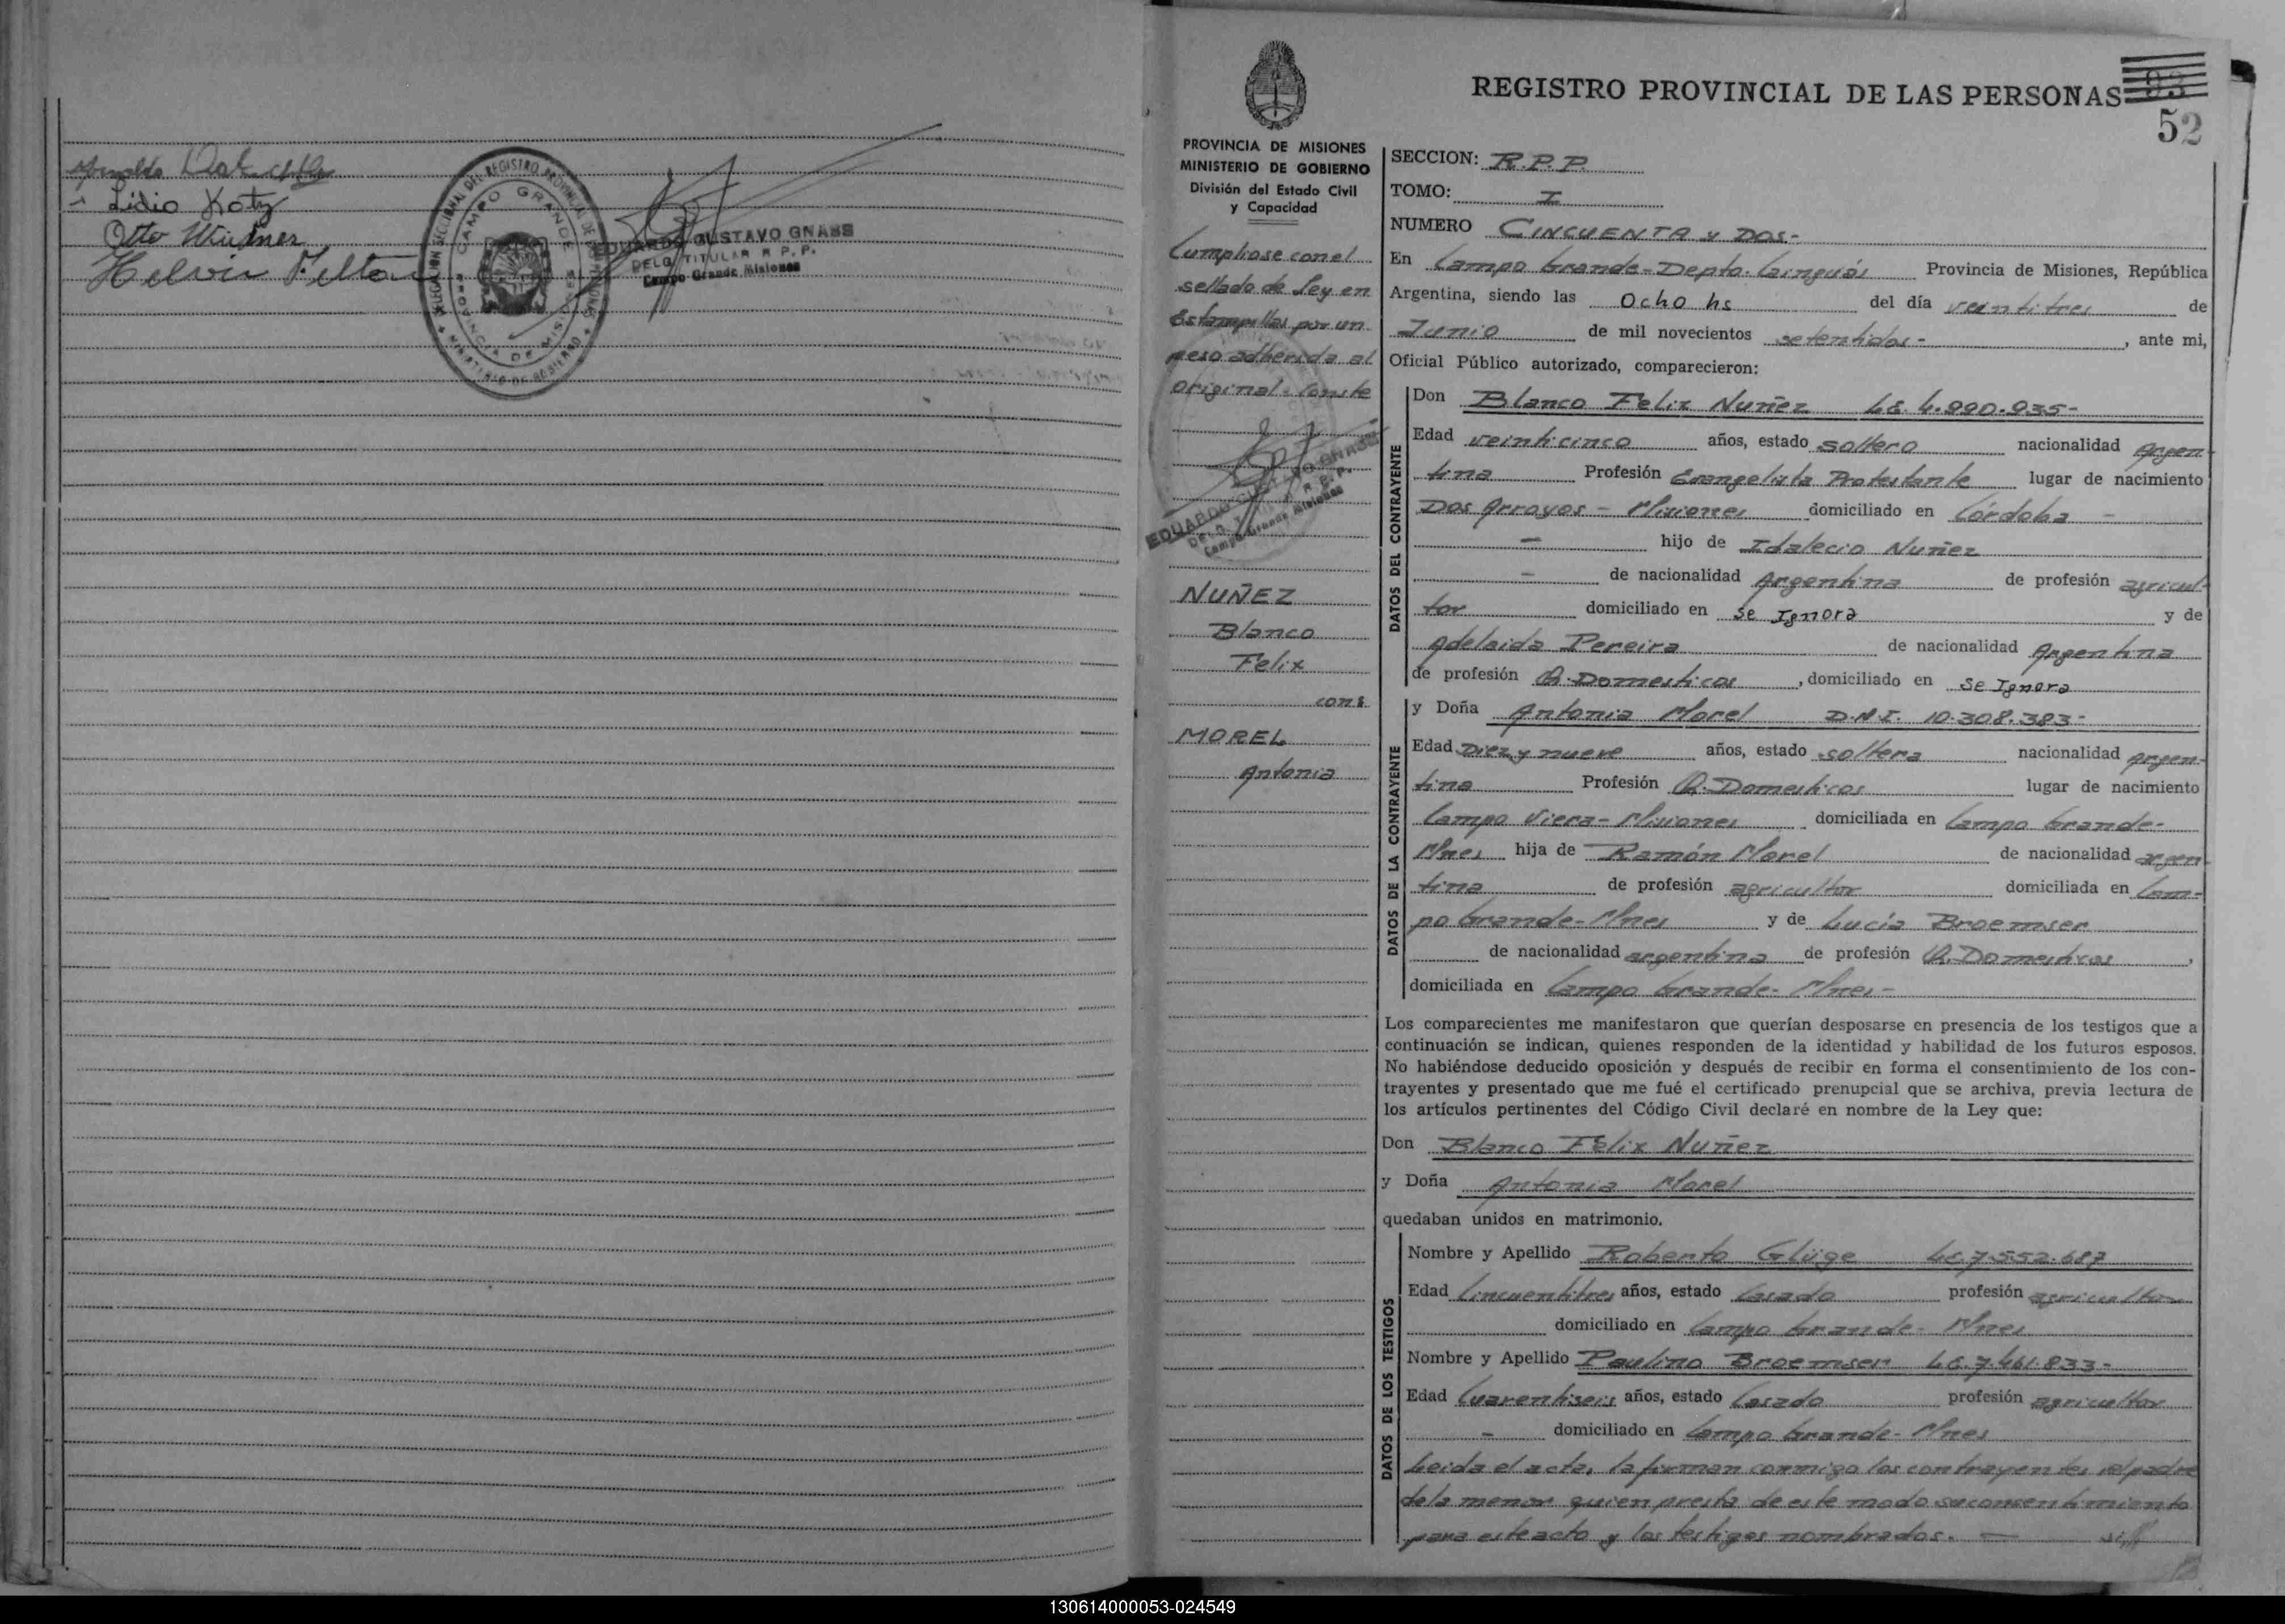 Lidio Kotz
Otto Widner
Helvin
DELEGACION SECCIONAL DEL REGISTRO PROVINCIAL DE LAS PERSONAS
CAMPO GRANDE
PROVINCIA DE MISIONES
MINISTERIO DE GOBIERNO
EDUARDO GUSTAVO GNASS
DELG. TITULAR R.P.P.
Campo Grande Misiones
REGISTRO PROVINCIAL DE LAS PERSONAS
93
52
PROVINCIA DE MISIONES
MINISTERIO DE GOBIERNO
División del Estado Civil
y Capacidad
Cumpliose con el
sellado de Ley en
Estampillas por un
peso adherida al
original - Conste
EDUARDO GUSTAVO GNASS
DELG. TITULAR R.P.P.
Campo Grande Misiones
NUÑEZ
Blanco
Felix
con:
MOREL
Antonia
SECCION: R.P.P.
TOMO: I
NUMERO CINCUENTA Y DOS-
En Campo Grande-Depto. Cainguás Provincia de Misiones, República
Argentina, siendo las Ocho hs del día veintitres de
Junio de mil novecientos setentidos- , ante mi,
Oficial Público autorizado, comparecieron:
DATOS DEL CONTRAYENTE
Don Blanco Felix Nuñez L.E. 4.990.935-
Edad veinticinco años, estado soltero nacionalidad Argen-
tina Profesión Evangelista Protestante lugar de nacimiento
Dos Arroyos - Misiones domiciliado en Córdoba -
- hijo de Idalecio Nuñez
- de nacionalidad Argentina de profesión agricul-
tor domiciliado en se Ignora y de
Adelaida Pereira de nacionalidad Argentina
de profesión Q. Domesticos , domiciliado en se Ignora
DATOS DE LA CONTRAYENTE
y Doña Antonia Morel D.N.I. 10.308.383-
Edad Diez y nueve años, estado soltera nacionalidad argen-
tina Profesión Q. Domesticos lugar de nacimiento
Campo Viera - Misiones domiciliada en Campo Grande-
Mnes hija de Ramón Morel de nacionalidad argen-
tina de profesión agricultor domiciliada en Cam-
po Grande-Mnes y de Lucía Broemser
de nacionalidad argentina de profesión Q. Domesticos ,
domiciliada en Campo Grande- Mnes-
Los comparecientes me manifestaron que querían desposarse en presencia de los testigos que a
continuación se indican, quienes responden de la identidad y habilidad de los futuros esposos.
No habiéndose deducido oposición y después de recibir en forma el consentimiento de los con-
trayentes y presentado que me fué el certificado prenupcial que se archiva, previa lectura de
los artículos pertinentes del Código Civil declaré en nombre de la Ley que:
Don Blanco Felix Nuñez
y Doña Antonia Morel
quedaban unidos en matrimonio.
DATOS DE LOS TESTIGOS
Nombre y Apellido Roberto Glüge L.E. 7.552.687
Edad Cincuentitres años, estado Casado profesión agricultor
domiciliado en Campo Grande- Mnes
Nombre y Apellido Paulino Broemser L.E. 7.461.833-
Edad Cuarentiseis años, estado Casado profesión agricultor
- domiciliado en Campo Grande- Mnes
Leida el acta, la firman conmigo los contrayentes, el padre
de la menor quien presta de este modo su consentimiento
para este acto y los testigos nombrados. -
130614000053-024549